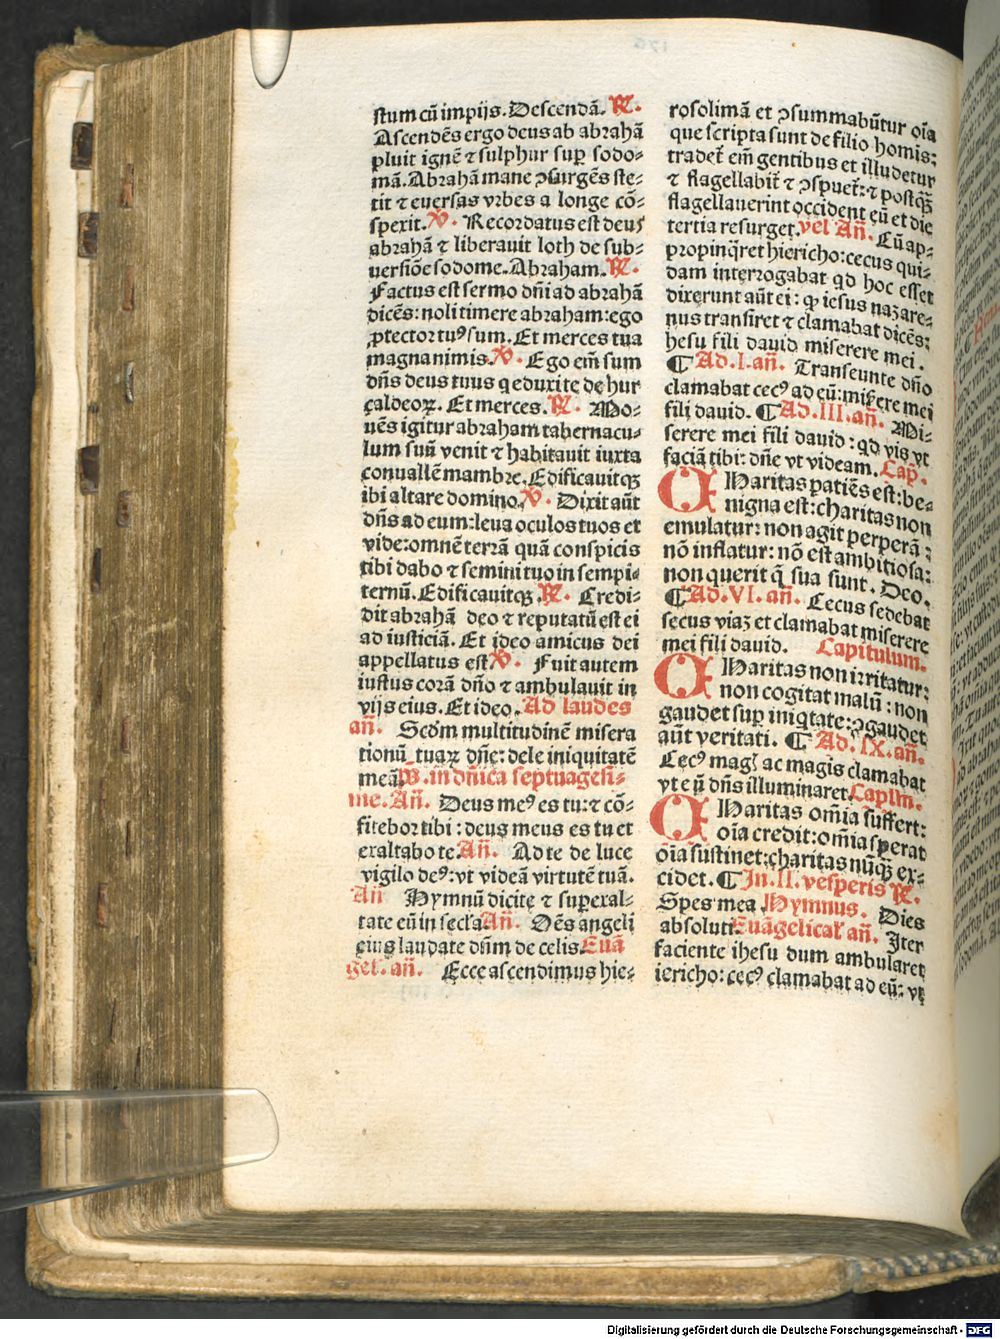 stum cū impijs. Descendā. R̷.
Ascendēs ergo deus ab abrahā
pluit ignē ⁊ sulphur sup̄ sodo⸗
mā. Abrahā mane ꝯsurgēs ste⸗
tit ⁊ euersas vrbes a longe cō⸗
spexit. V̷. Recordatus est deus
abrahā ⁊ liberauit loth de sub⸗
uersiōe sodome. Abraham. R̷.
Factus est sermo dn̄i ad abrahā
dicēs: noli timere abraham: ego
ꝓtector tuꝰ sum. Et merces tua
magna nimis. V̷. Ego em̄ sum
dn̄s deus tuus q eduxi te de hur
caldeoꝝ. Et merces. R̷. Mo⸗
uēs igitur abraham tabernacu⸗
lum suū venit ⁊ habitauit iuxta
conuallē mambre. Edificauitqꝫ
ibi altare domino. V̷. Dixit aūt
dn̄s ad eum: leua oculos tuos et
vide: omnē terrā quā conspicis
tibi dabo ⁊ semini tuo in sempi⸗
ternū. Edificauitqꝫ. R̷. Credi⸗
dit abrahā deo ⁊ reputatū est ei
ad iusticiā. Et ideo amicus dei
appellatus est V̷. Fuit autem
iustus corā dn̄o ⁊ ambulauit in
vijs eius. Et ideo. Ad laudes
an̄. Scd̄m multitudinē misera
tionū tuaꝝ dn̄e: dele iniquitatē
meā P̄s. in dn̄ica septuagesi⸗
me. An̄. Deus meꝰ es tu: ⁊ cō⸗
fitebor tibi: deus meus es tu et
exaltabo te. An̄. Ad te de luce
vigilo deꝰ: vt videā virtutē tuā.
An̄ Hymnū dicite ⁊ superexal⸗
tate eū in secl̄a An̄. Oēs angeli
eius laudate dn̄m de celis. Euā
gel. an̄. Ecce ascendimus hie⸗
rosolimā et ꝯsummabūtur oīa
que scripta sunt de filio homis:
tradet em̄ gentibus et illudetur
⁊ flagellabit̄ ⁊ ꝯspuet̄: ⁊ postqꝫ̄
flagellauerint occident eū et die
tertia resurget. vel An̄. Cū ap⸗
propinq̄ret hiericho: cecus qui⸗
dam interrogabat qd hoc esset
dixerunt aūt ei: ꝙ iesus nazare⸗
nus transiret ⁊ clamabat dicēs:
hesu fili dauid miserere mei.
¶ Ad. I. an̄. Transeunte dn̄o
clamabat cecꝰ ad eū: miserere mei
fili dauid. ¶ Ad. III. an̄. Mi⸗
serere mei fili dauid: qd vis vt
faciā tibi: dn̄e vt videam. Cap̄.
CHaritas patiēs est: be⸗
nigna est: charitas non
emulatur: non agit perperā:
nō inflatur: nō est ambitiosa:
non querit q̄ sua sunt. Deo.
¶ Ad. VI. an̄. Cecus sedebat
secus viaꝫ et clamabat miserere
mei fili dauid. Capitulum.
CHaritas non irritatur:
non cogitat malū: non
gaudet sup̄ iniq̄tate: ꝯgaudet
aūt veritati. ¶ Ad. IX. an̄.
Cecꝰ magꝭ ac magis clamabat
vt eū dn̄s illuminaret. Caplm̄.
CHaritas om̄ia suffert:
oīa credit: om̄ia sperat
oīa sustinet: charitas nūqꝫ̄ ex⸗
cidet. ¶ In. II. vesperis R̷.
Spes mea. Hymnus. Dies
absoluti Euāgelical̄ an̄. Iter
faciente ihesu dum ambularet
iericho: cecꝰ clamabat ad eū: vt
Digitalisierung gefördert durch die Deutsche Forschungsgemeinschaft - DFG